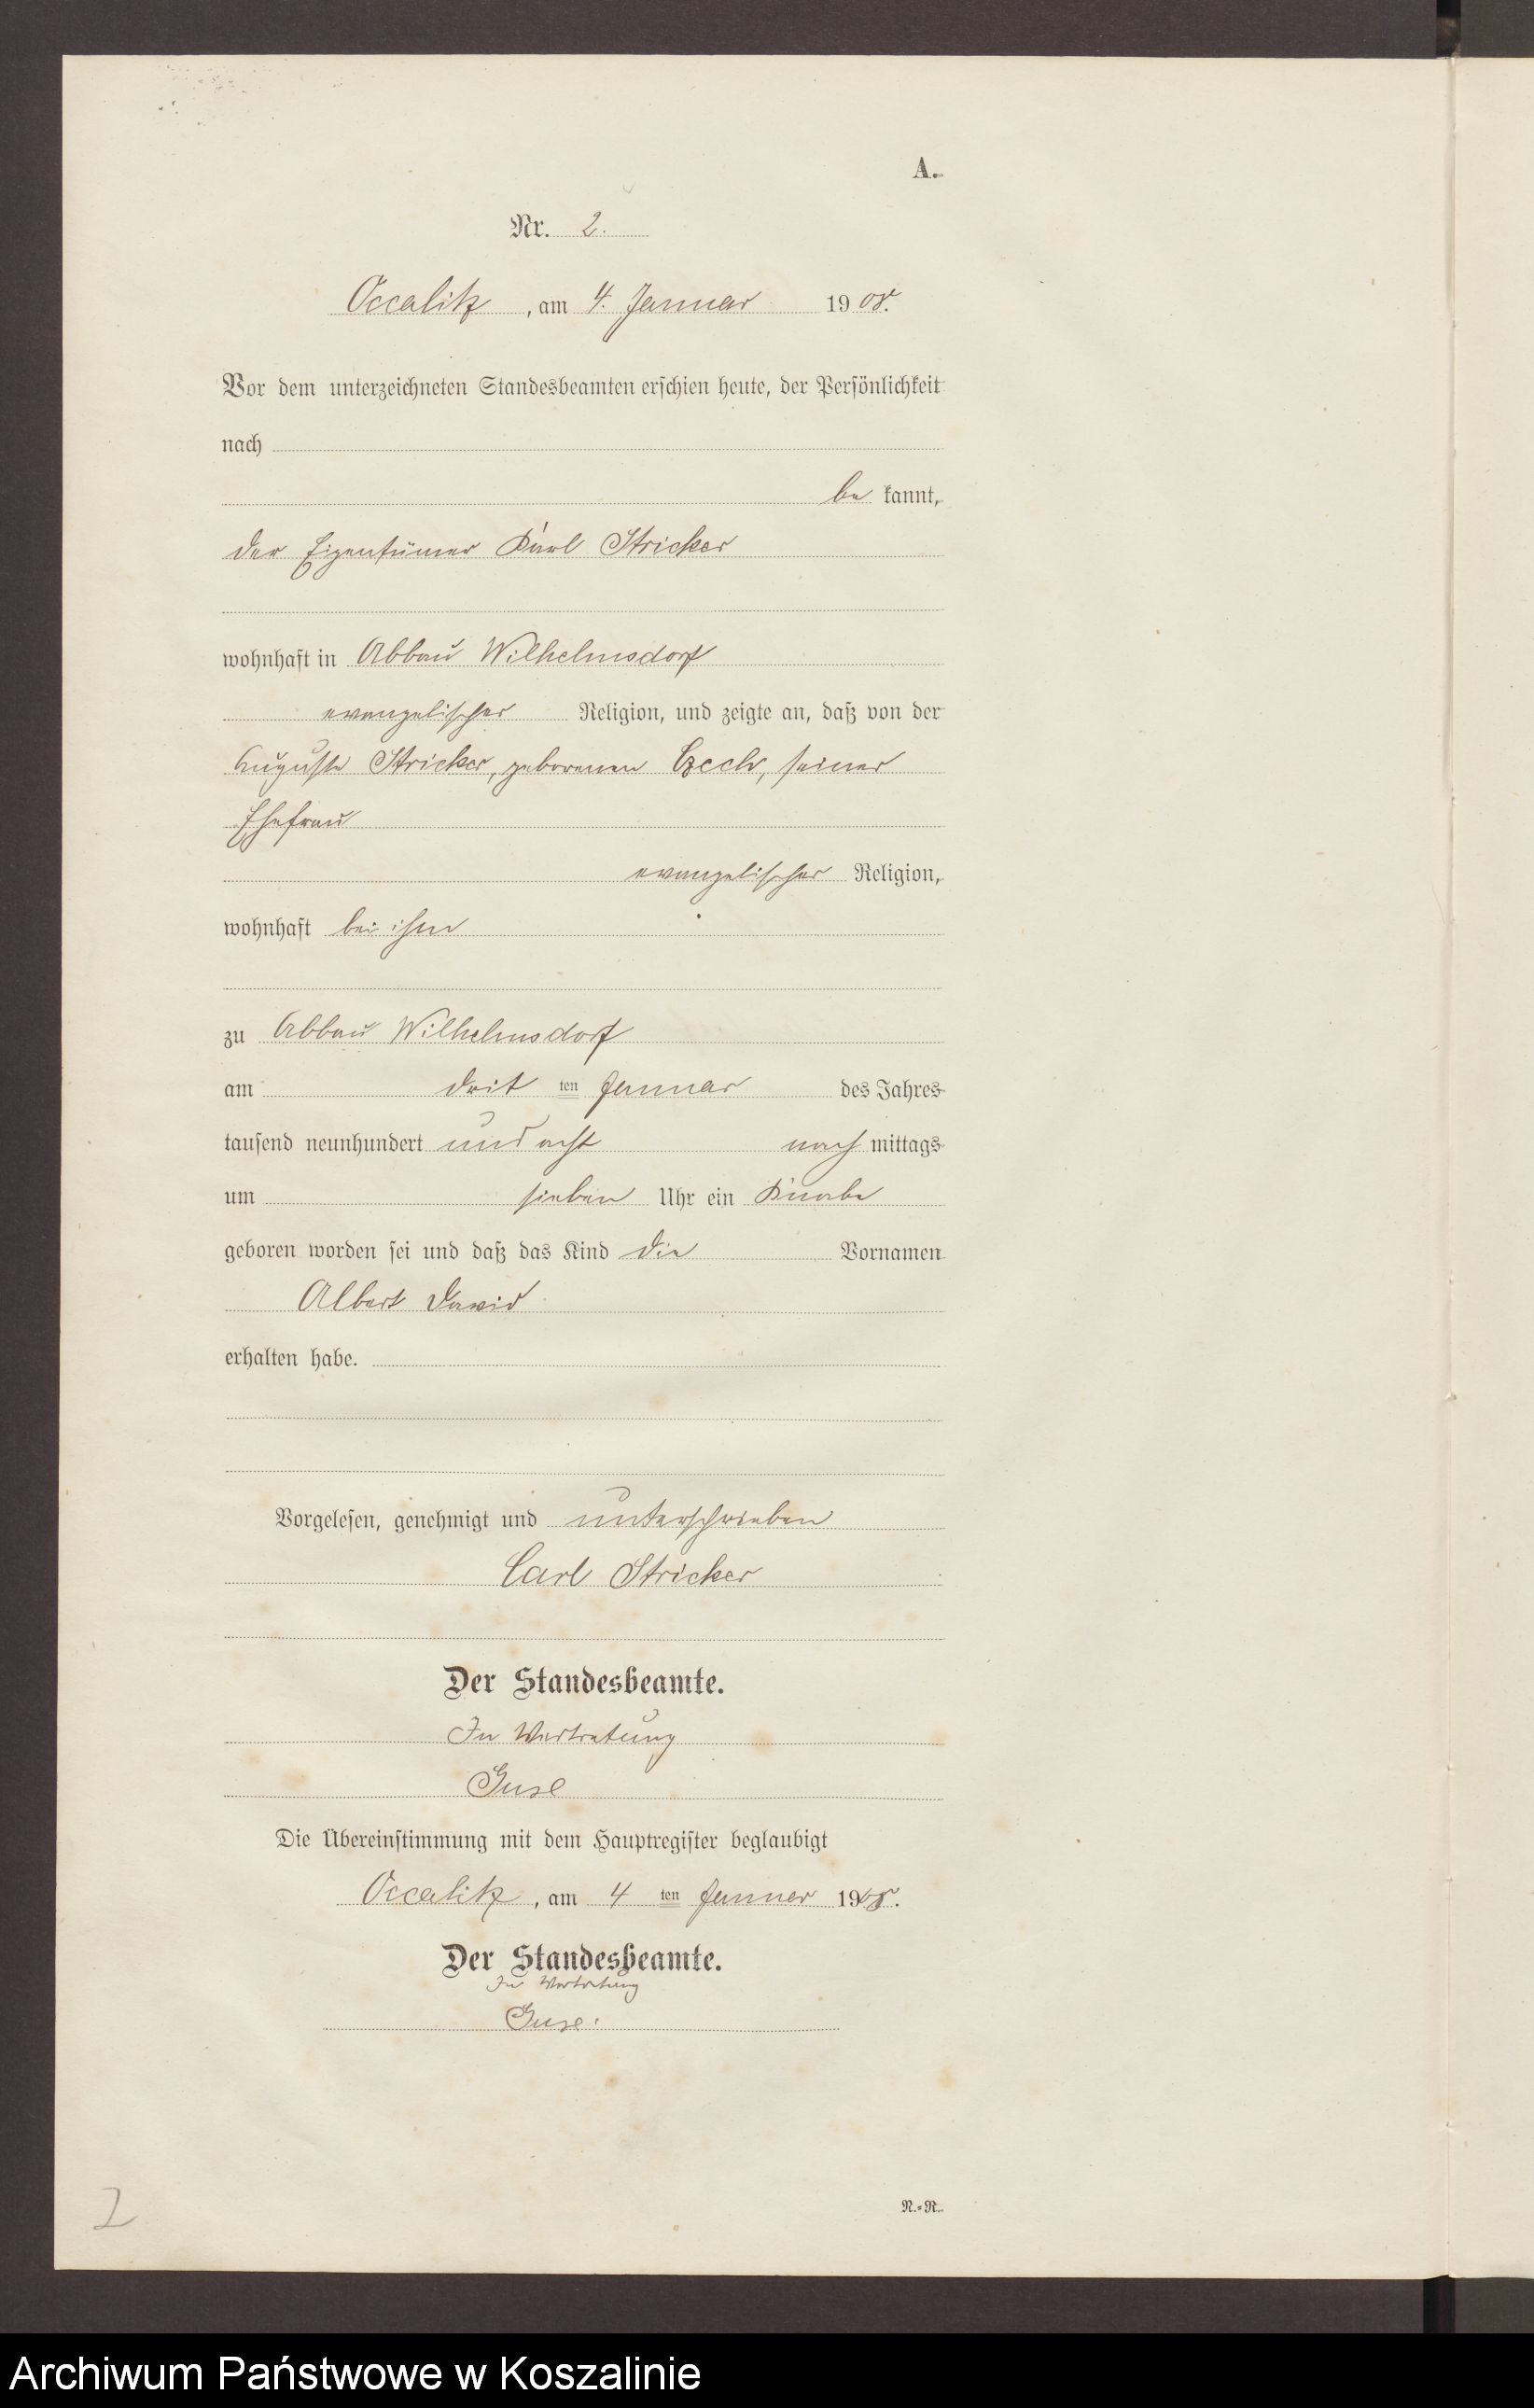 A.
Nr. 2.
Occalitz, am 4. Januar 1908.
Vor dem unterzeichneten Standesbeamten erschien heute, der Persönlichkeit
nach
be kannt,
der Eigentümer Karl Stricker
wohnhaft in Abbau Wilhelmsdorf
evangelischer Religion, und zeigte an, daß von der
Auguste Stricker, geborenen Czech, seiner
Ehefrau
evangelischer Religion,
wohnhaft bei ihm
zu Abbau Wilhelmsdorf
am dritten Januar des Jahres
tausend neunhundert und acht nach mittags
um sieben Uhr ein Knabe
geboren worden sei und daß das Kind die Vornamen
Albert David
erhalten habe.
Vorgelesen, genehmigt und unterschrieben
Carl Stricker
Der Standesbeamte.
In Vertretung
Guse
Die Übereinstimmung mit dem Hauptregister beglaubigt
Occalitz, am 4 ten Januar 1908.
Der Standesbeamte.
In Vertretung
Guse.
N.=R.
2
Archiwum Państwowe w Koszalinie